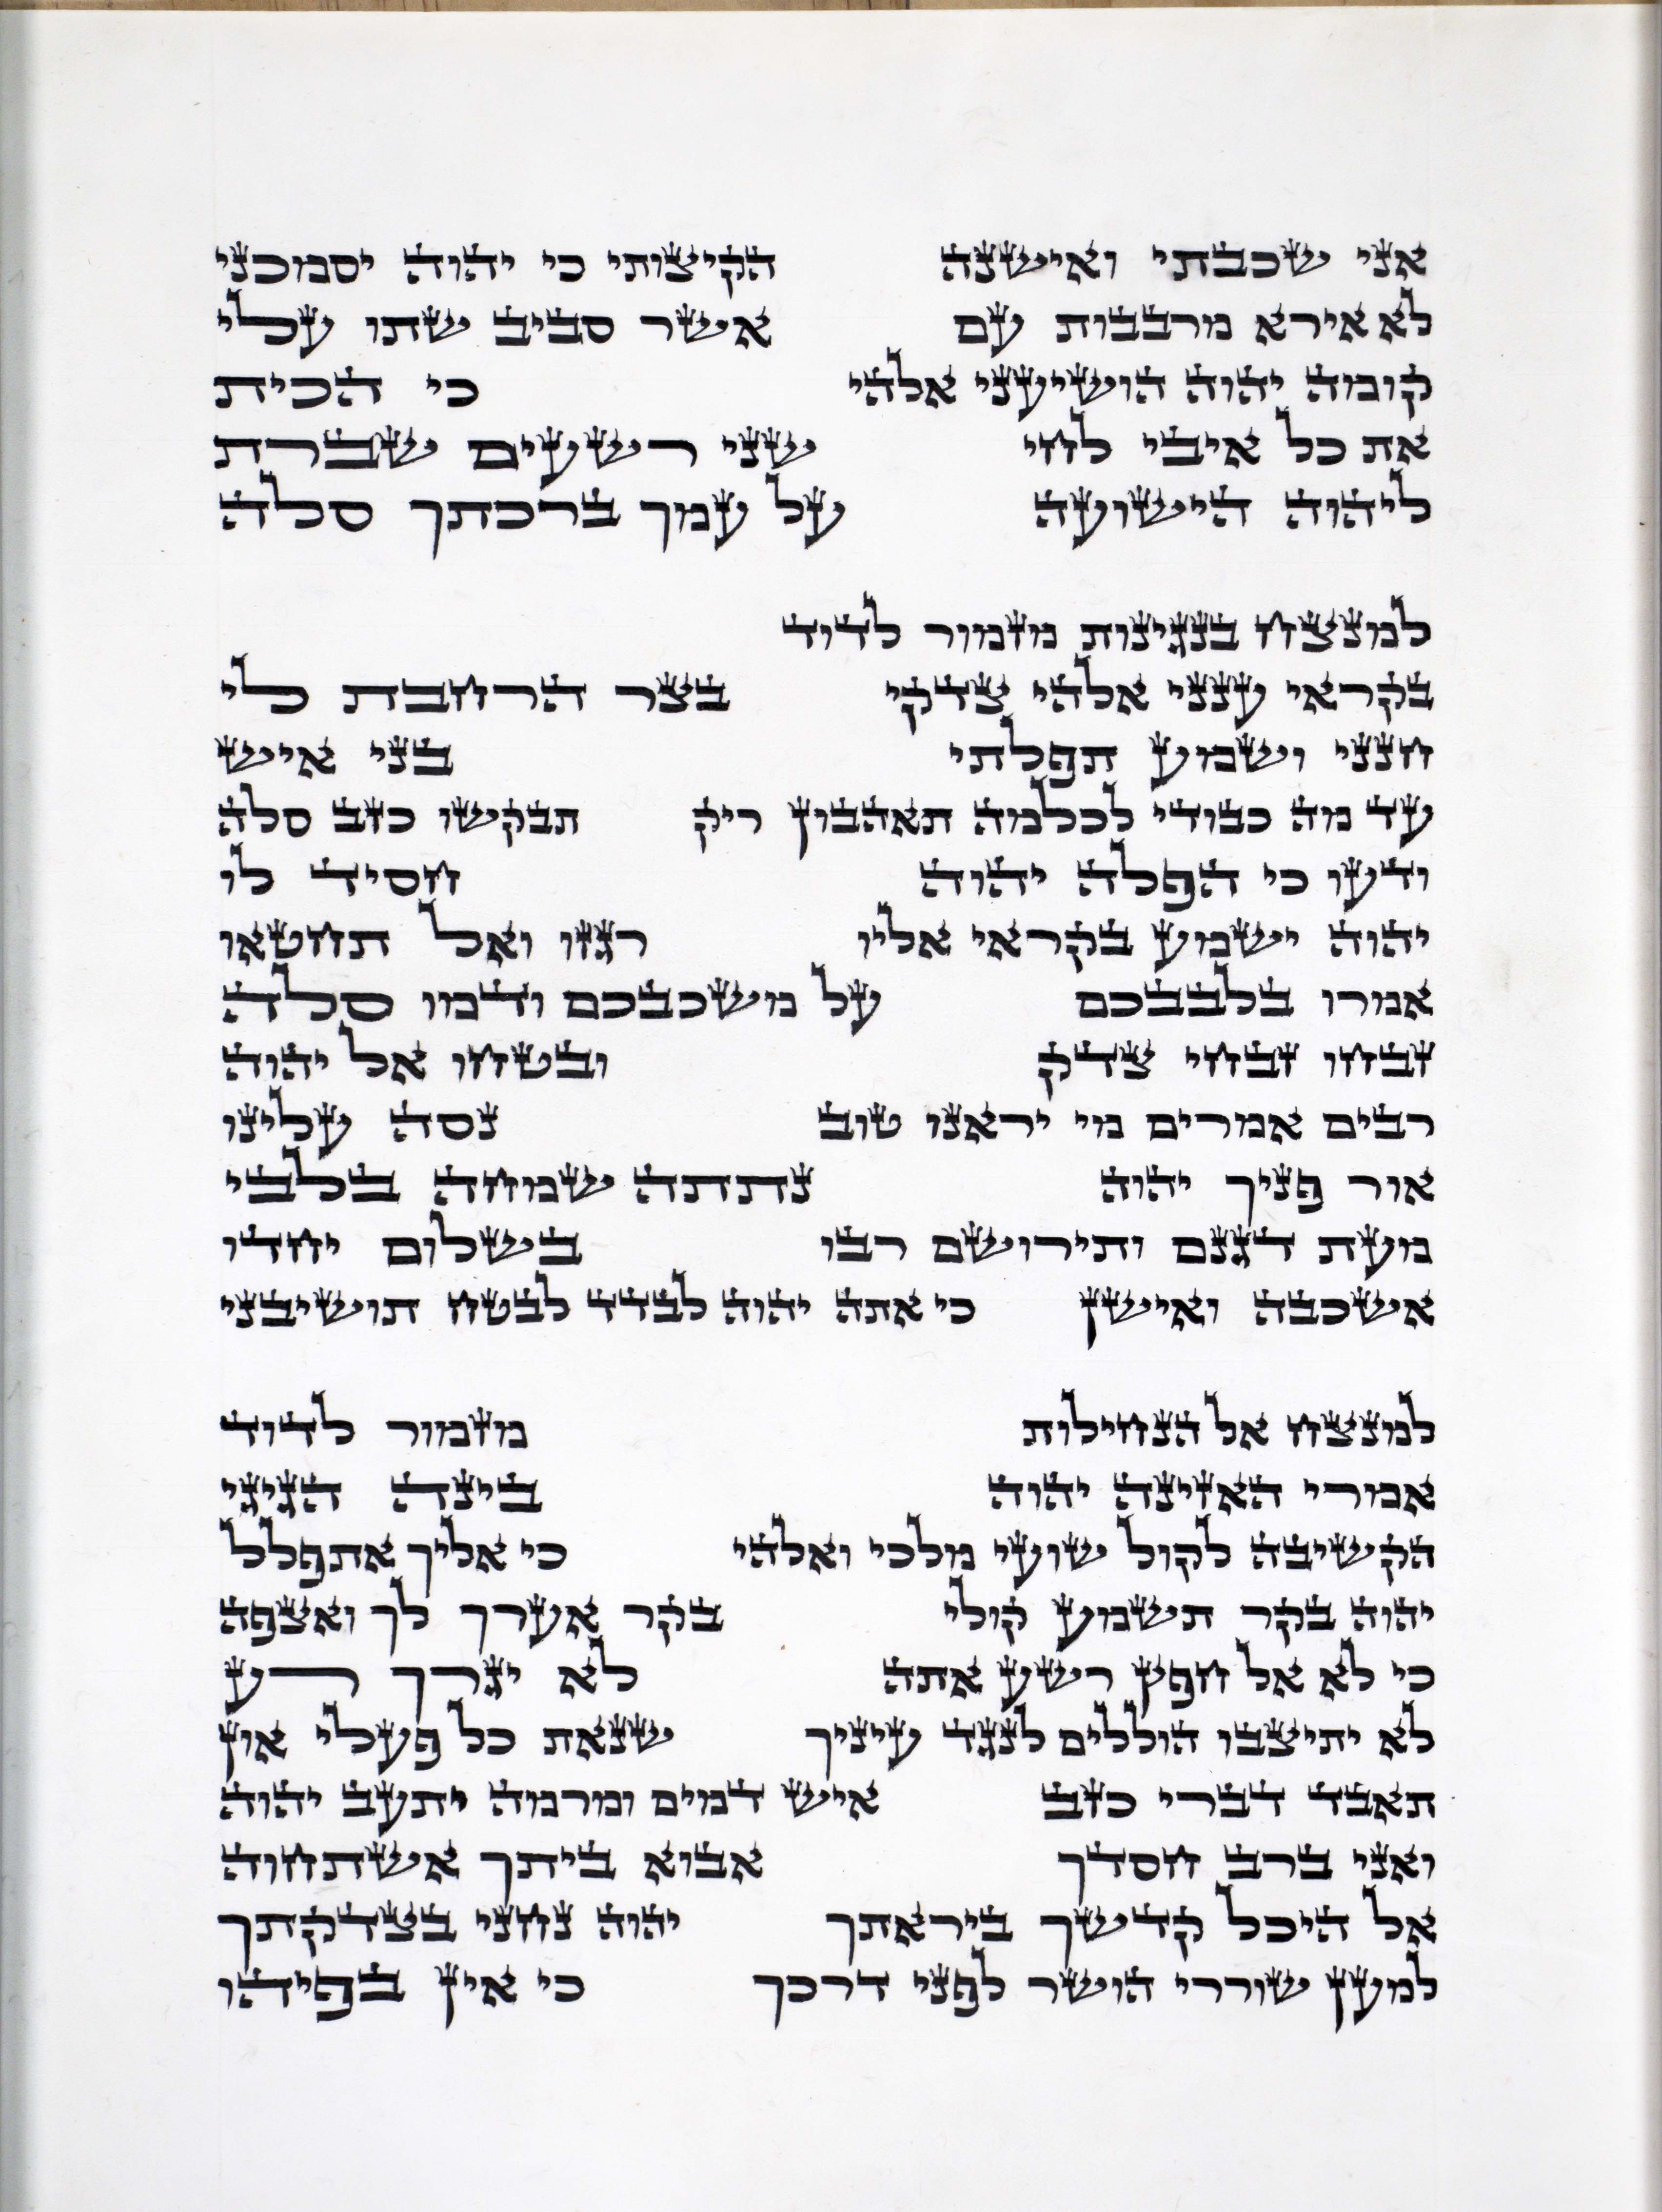 אני שכבתי ואישנה הקיצותי כי יהוה יסמכני
לא אירא מרבבות עם אשר סביב שתו עלי
קומה יהוה הושיעני אלהי כי הכית
את כל איבי לחי שני רשעים שברת
ליהוה הישועה על עמך ברכתך סלה
למנצח בנגינות מזמור לדוד
בקראי ענני אלהי צדקי בצר הרחבת לי
חנני ושמע תפלתי בני איש
עד מה כבודי לכלמה תאהבון ריק תבקשו כזב סלה
ודעו כי הפלה יהוה חסיד לו
יהוה ישמע בקראי אליו רגזו ואל תחטאו
אמרו בלבבכם על משכבכם ודמו סלה
זבחו זבחי צדק ובטחו אל יהוה
רבים אמרים מי יראנו טוב נסה עלינו
אור פניך יהוה נתתה שמחה בלבי
מעת דגנם ותירושם רבו בשלום יחדו
אשכבה ואישן כי אתה יהוה לבדד לבטח תושיבני
למנצח אל הנחילות מזמור לדוד
אמרי האזינה יהוה בינה הגיגי
הקשיבה לקול שועי מלכי ואלהי כי אליך אתפלל
יהוה בקר תשמע קולי בקר אערך לך ואצפה
כי לא אל חפץ רשע אתה לא יגרך רע
לא יתיצבו הוללים לנגד עיניך שנאת כל פעלי און
תאבד דברי כזב איש דמים ומרמה יתעב יהוה
ואני ברב חסדך אבוא ביתך אשתחוה
אל היכל קדשך ביראתך יהוה נחני בצדקתך
למען שוררי הושר לפני דרכך כי אין בפיהו